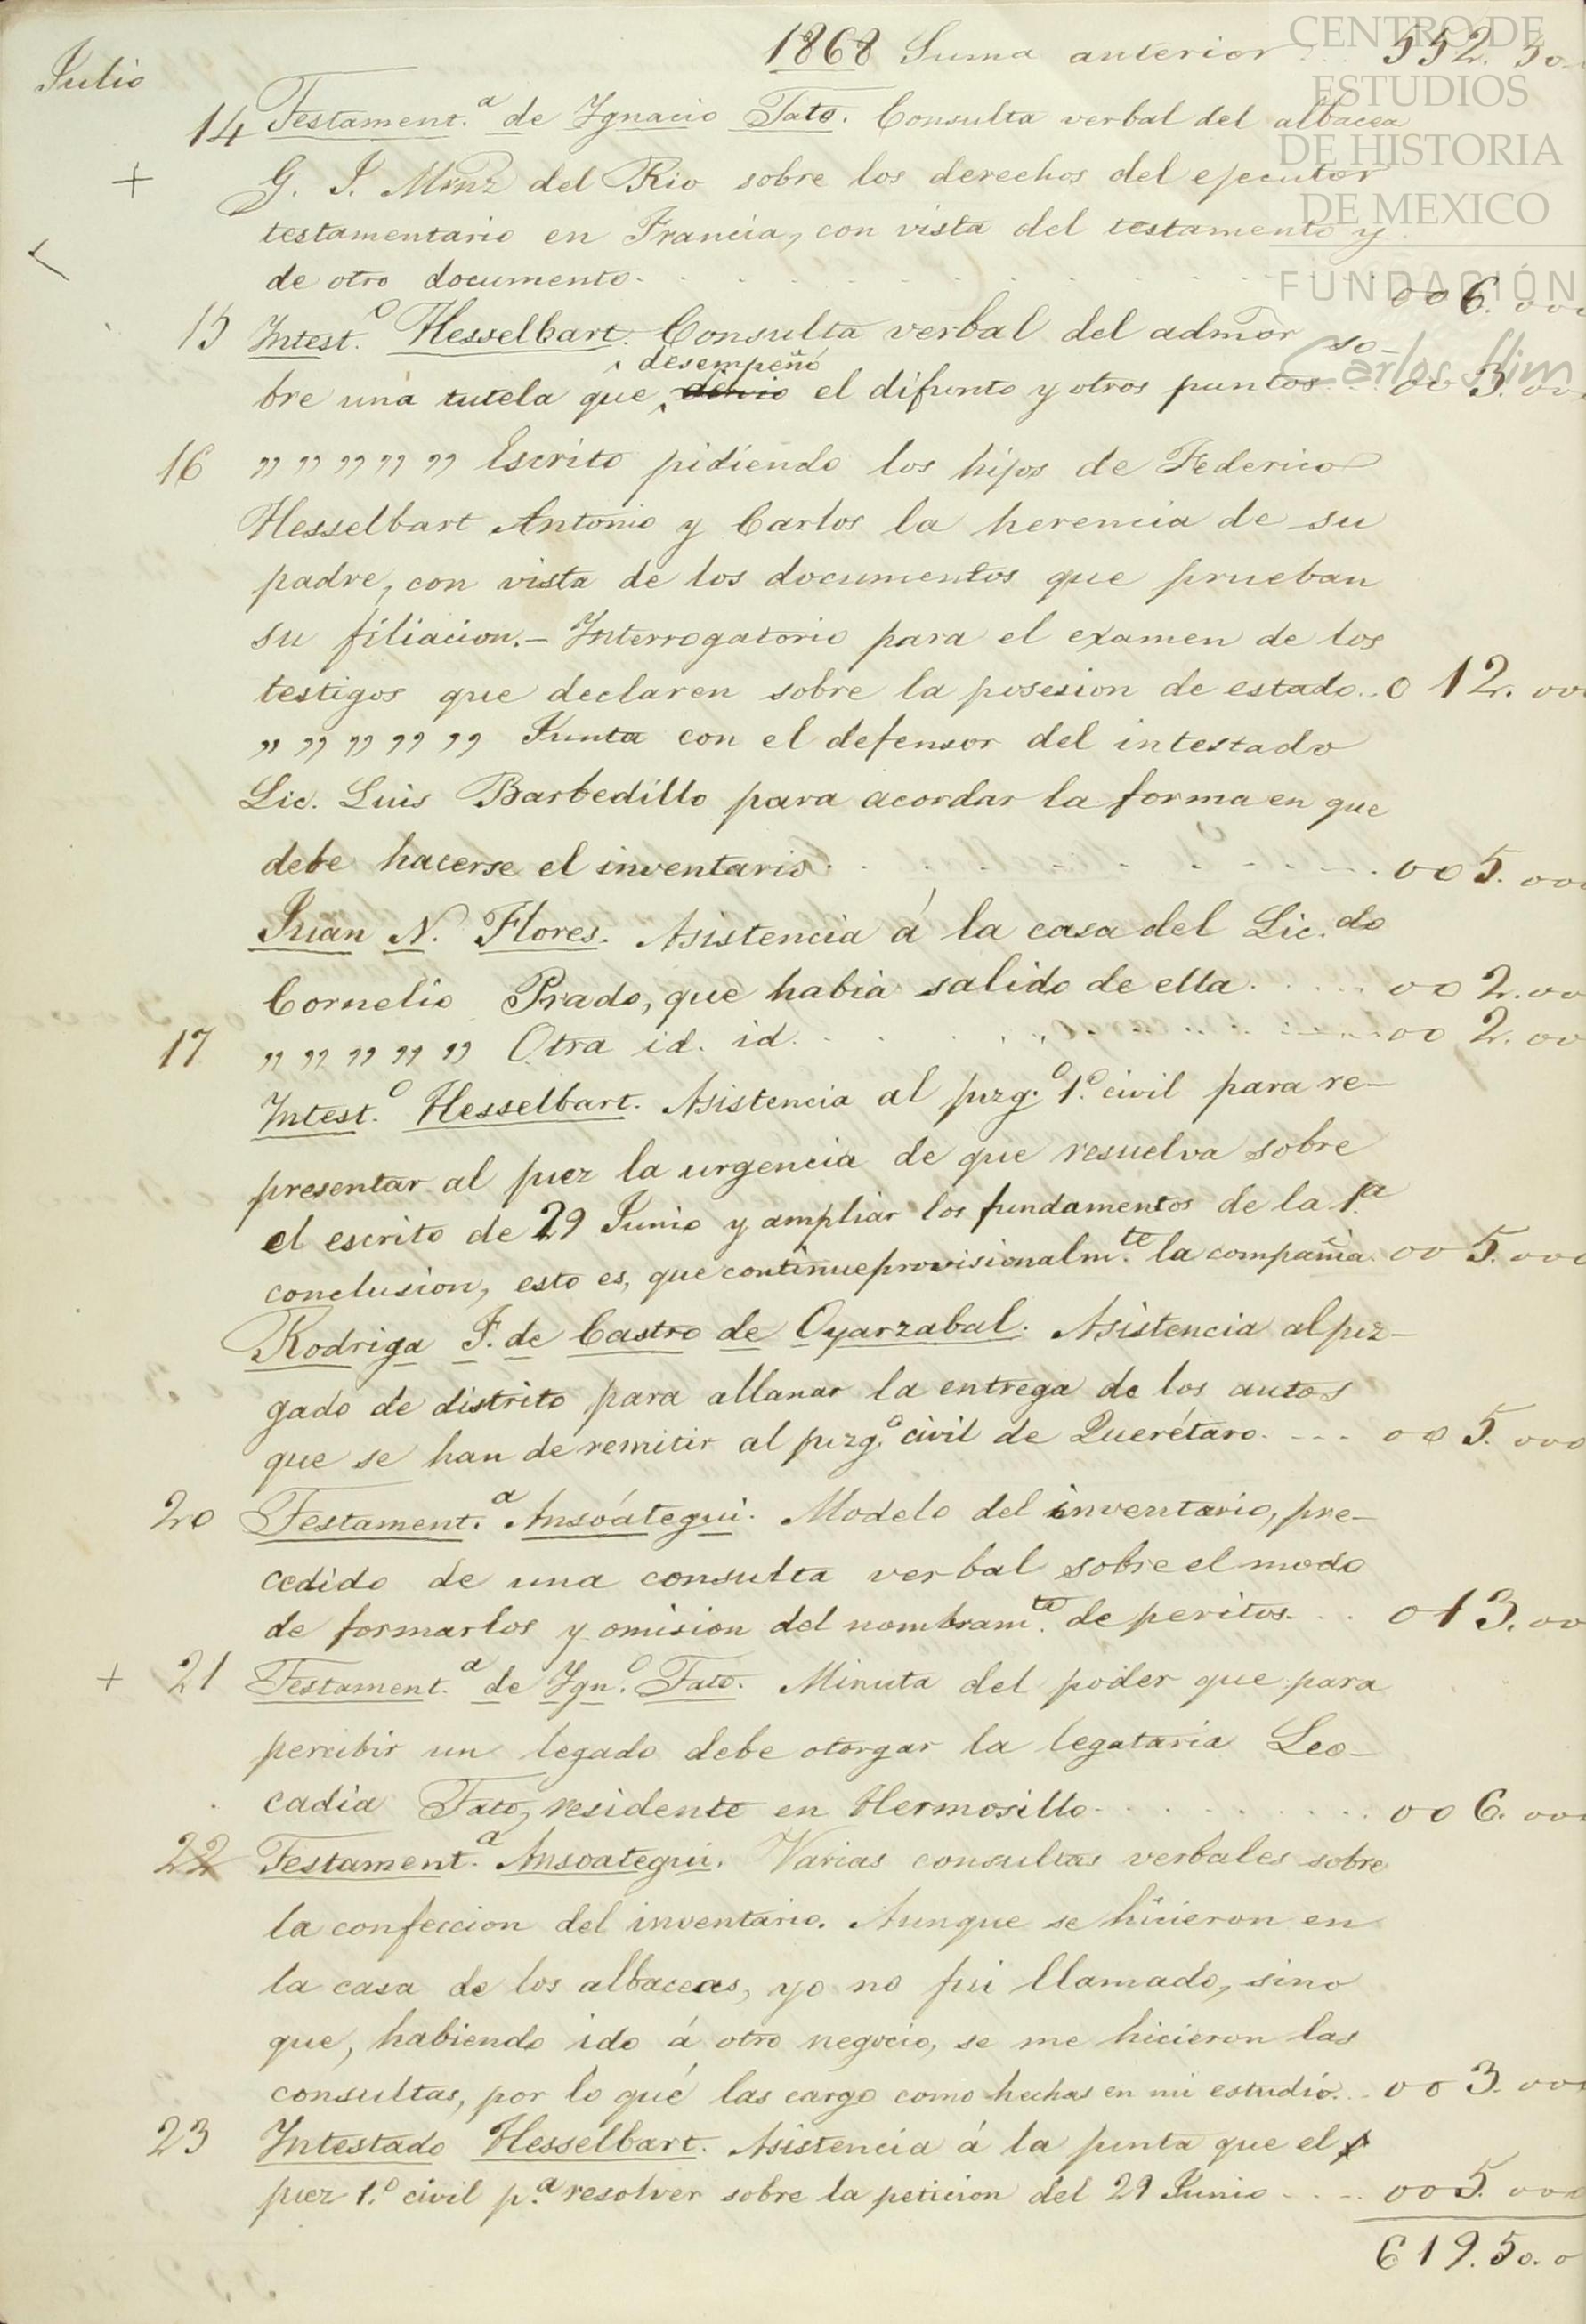 1868 Suma anterior 552. 50
Julio
14 Testament.ª de Ygnacio Tato. Consulta verbal del albacea
+ G. J. Mrnz del Rio sobre los derechos del ejecutor
testamentario en Francia, con vista del testamento y
de otro documento. 006. 000
15 Intest.º Hesselbart. Consulta verbal del admor so-
desempeñó
bre una tutela que el difunto y otros puntos 003. 000
16 " " " " " Escrito pidiendo los hijos de Federico
Hesselbart Antonio y Carlos la herencia de su
padre, con vista de los documentos que prueban
su filiacion.- Ynterrogatorio para el examen de los
testigos que declaren sobre la posesion de estado. 012. 000
" " " " " Junta con el defensor del intestado
Lic. Luis Barbedillo para acordar la forma en que
debe hacerse el inventario 005. 000
Juan N. Flores. Asistencia á la casa del Lic.do
Cornelio Prado, que habia salido de ella 002. 00
17 " " " " " Otra id. id. 002. 00
Intest.º Hesselbart. Asistencia al juzg.º 1.º civil para re-
presentar al juez la urgencia de que resuelva sobre
el escrito de 29 Junio y ampliar los fundamentos de la 1.ª
conclusion, esto es, que continue provisionalm.te la compañia 005. 000
Rodriga F. de Castro de Oyarzabal. Asistencia al juz-
gado de distrito para allanar la entrega de los autos
que se han de remitir al juzg.º civil de Querétaro. 005. 000
20 Testament.ª Ansoátegui. Modelo del inventario, pre-
cedido de una consulta verbal sobre el modo
de formarlos y omision del nombram.to de peritos. 013. 00
+ 21 Testament.ª de Ygn.º Tato. Minuta del poder que para
percibir un legado debe otorgar la legataria Leo-
cadia Tato, residente en Hermosillo. 006. 000
22 Testament.ª Ansoategui. Varias consultas verbales sobre
la confeccion del inventario. Aunque se hicieron en
la casa de los albaceas, yo no fui llamado, sino
que, habiendo ido á otro negocio, se me hicieron las
consultas, por lo qué las cargo como hechas en mi estudio. 003. 000
23 Intestado Hesselbart. Asistencia á la junta que el
juez 1.º civil p.ª resolver sobre la peticion del 29 Junio 005. 000
619. 50. 0
CENTRO DE
ESTUDIOS
DE HISTORIA
DE MEXICO
FUNDACIÓN
Carlos Slim